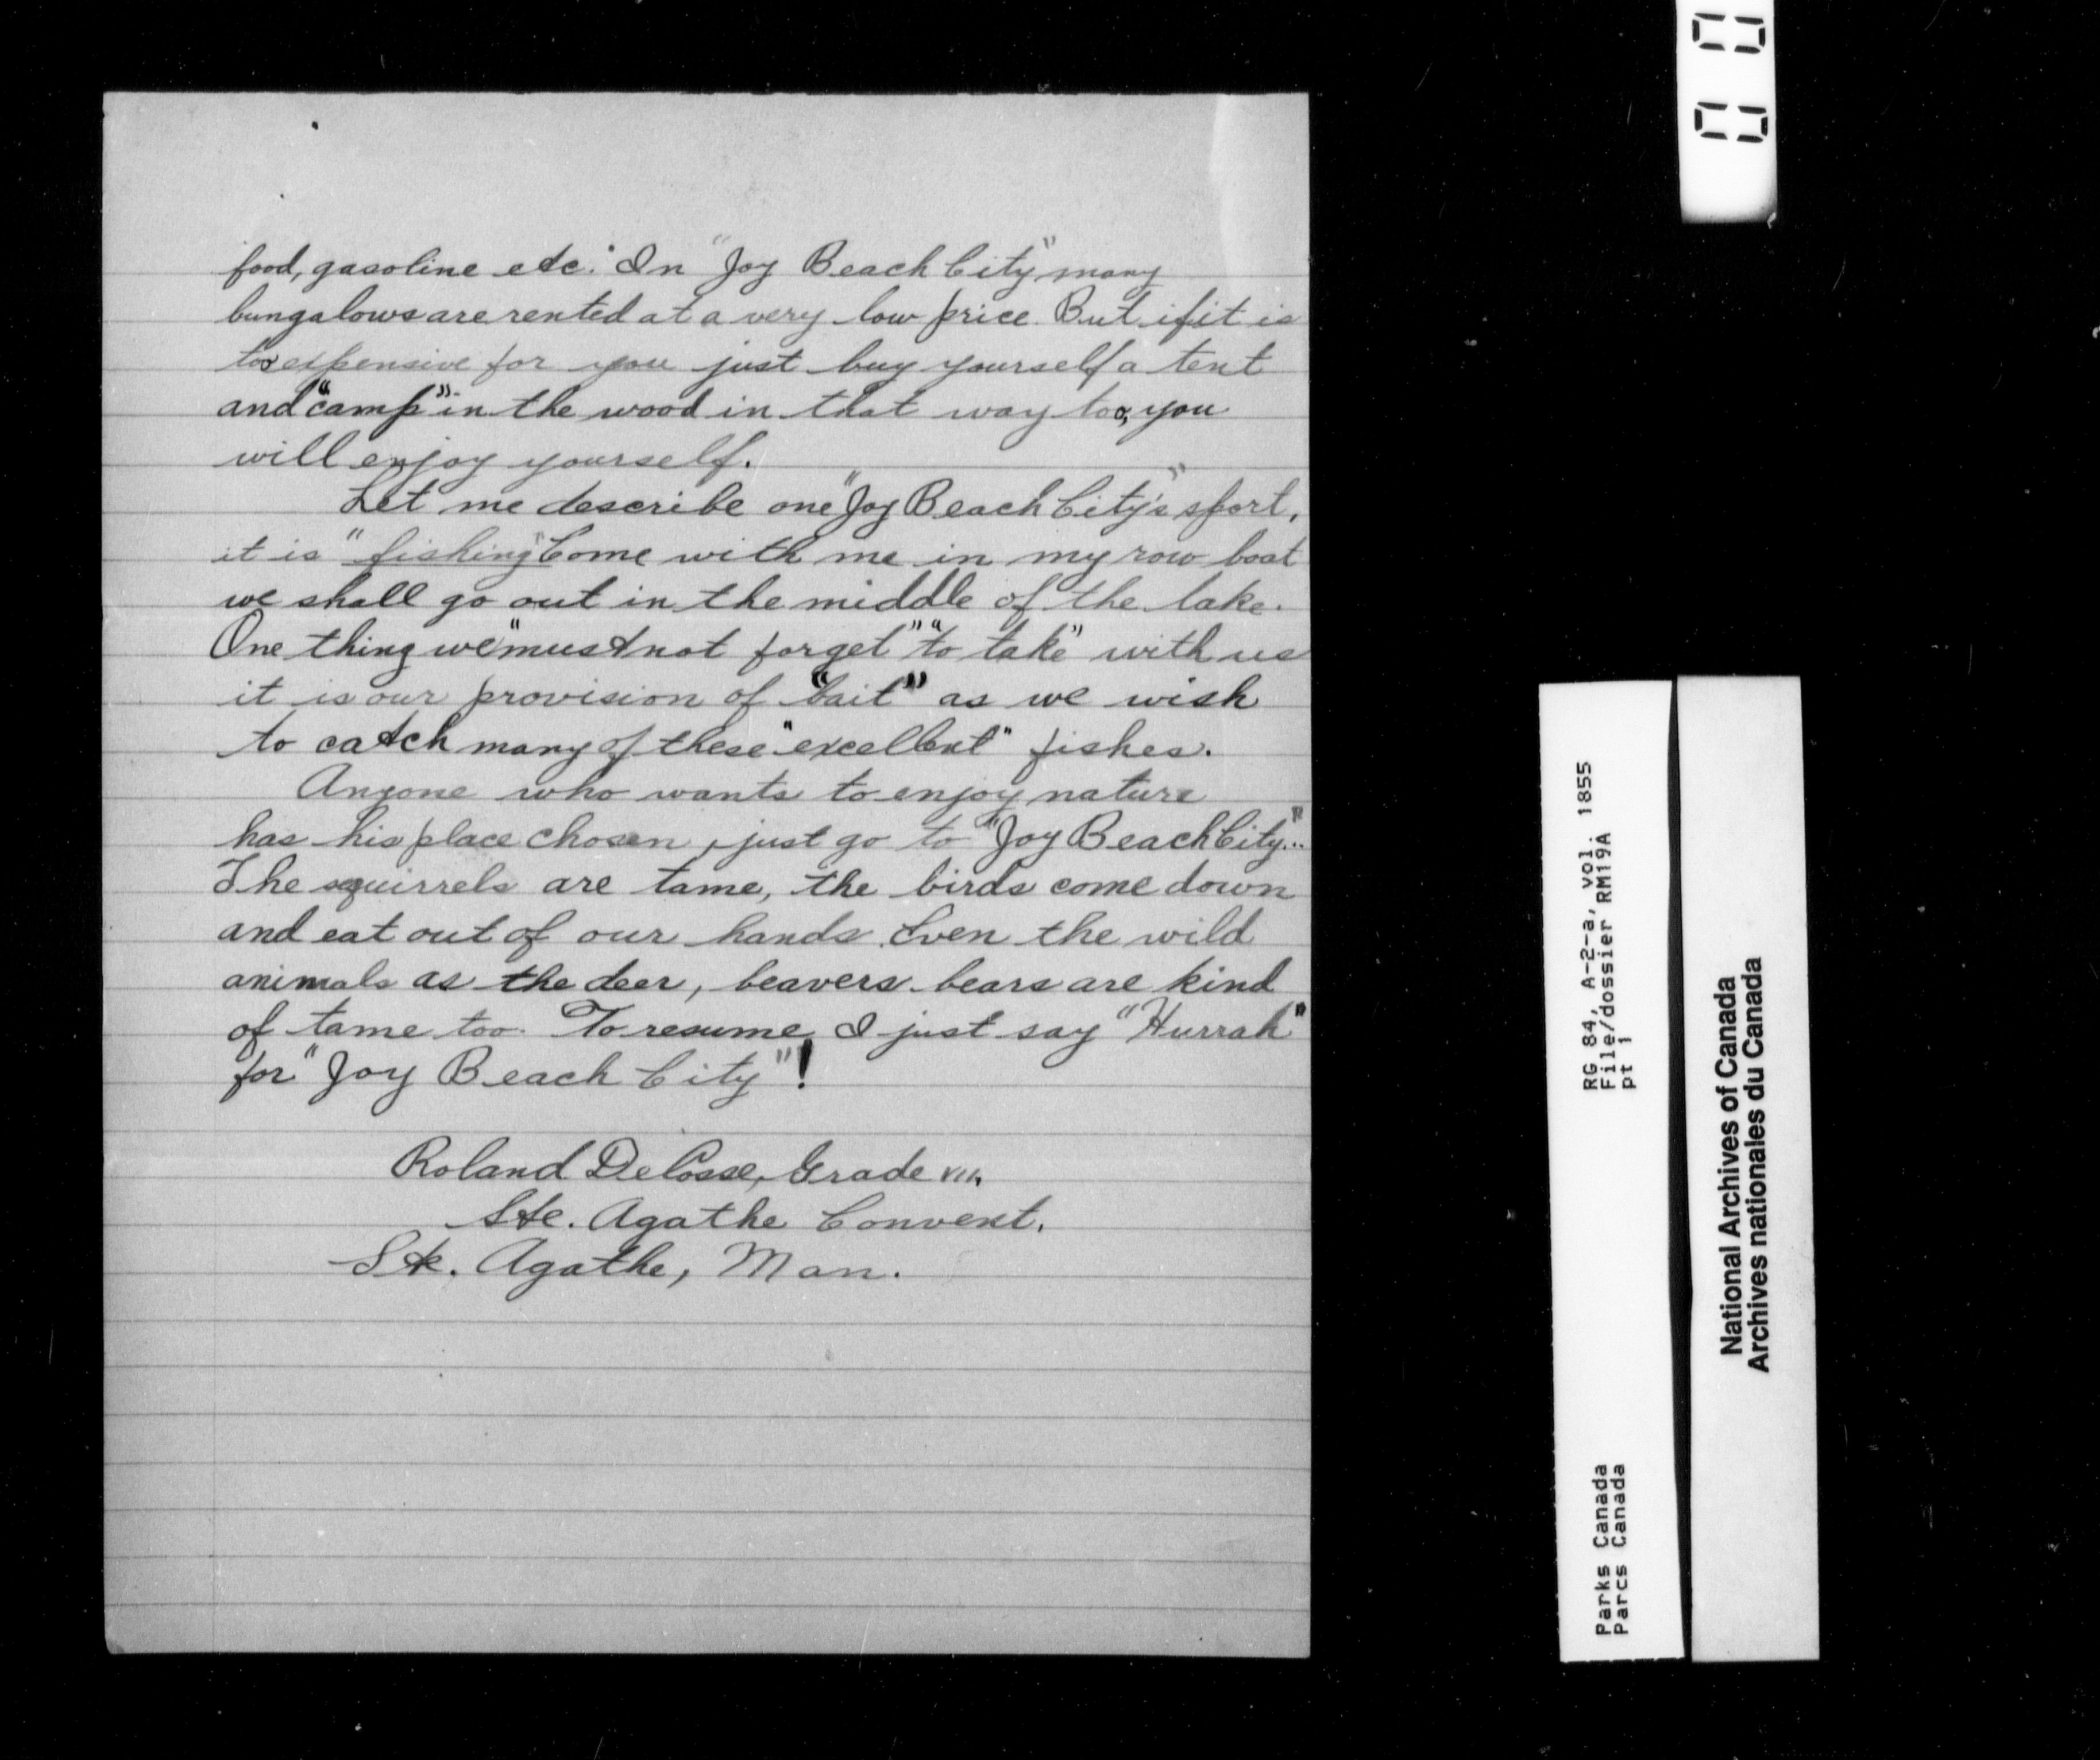 food, gasoline etc." In "Joy Beach City" many
bungalows are rented at a very low price. But if it is
too expensive for you just buy yourself a tent
and "camp" in the wood in that way too, you
will enjoy yourself.
Let me describe one "Joy Beach City's" sport,
it is "fishing" Come with me in my row boat
we shall go out in the middle of the lake.
One thing we "must not forget" "to take" with us
it is our provision of "bait" as we wish
to catch many of these "excellent" fishes.
Anyone who wants to enjoy nature
has his place chosen, just go to "Joy Beach City"...
The squirrels are tame, the birds come down
and eat out of our hands. Even the wild
animals as the deer, beavers bears are kind
of tame too. To resume I just say "Hurrah"
for "Joy Beach City"!
Roland DeCosse, Grade VII.
Ste. Agathe Convent.
Ste. Agathe, Man.
00
RG 84, A-2-a, vol. 1855
File/dossier RM19A
pt 1
Parks Canada
Parcs Canada
National Archives of Canada
Archives nationales du Canada